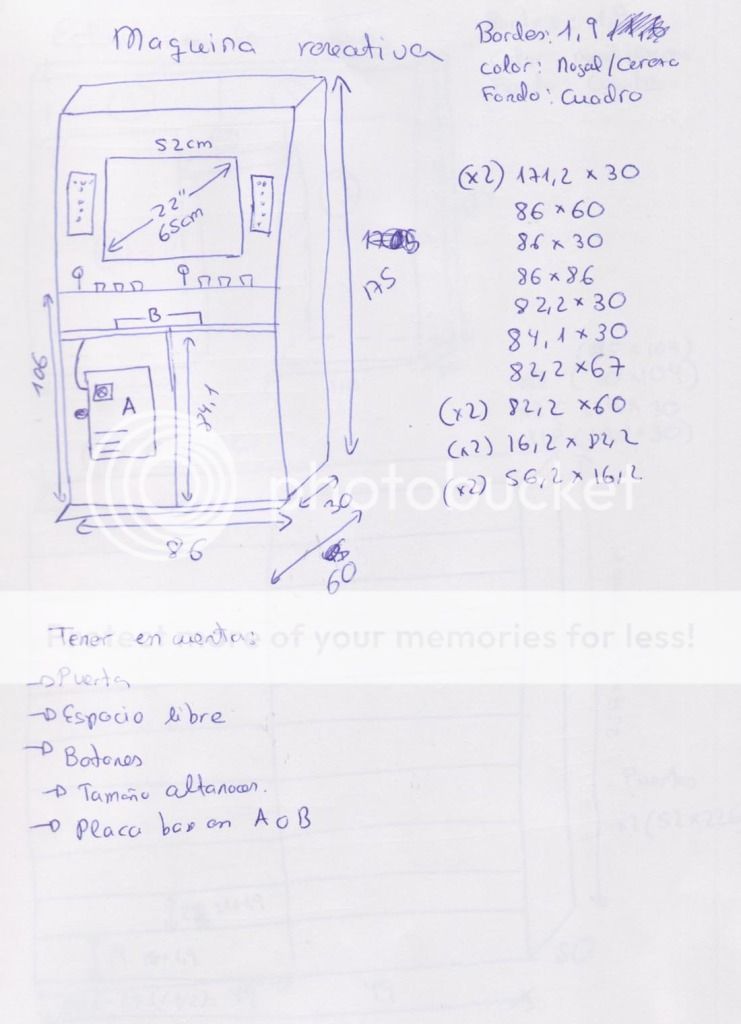 Maquina recreativa
Bordes: 1,9
color: Nogal/Cerezo
Fondo: Cuadro
52cm
22"
65cm
175
B
A
106
84,1
30
86
60
(x2) 171,2 x 30
86 x 60
86 x 30
86 x 86
82,2 x 30
84,1 x 30
82,2 x 67
(x2) 82,2 x 60
(x2) 16,2 x 82,2
(x2) 56,2 x 16,2
photobucket
Protect more of your memories for less!
Tener en cuenta:
→ Puerta
→ Espacio libre
→ Botones
→ Tamaño altavoces.
→ Placa base en A o B